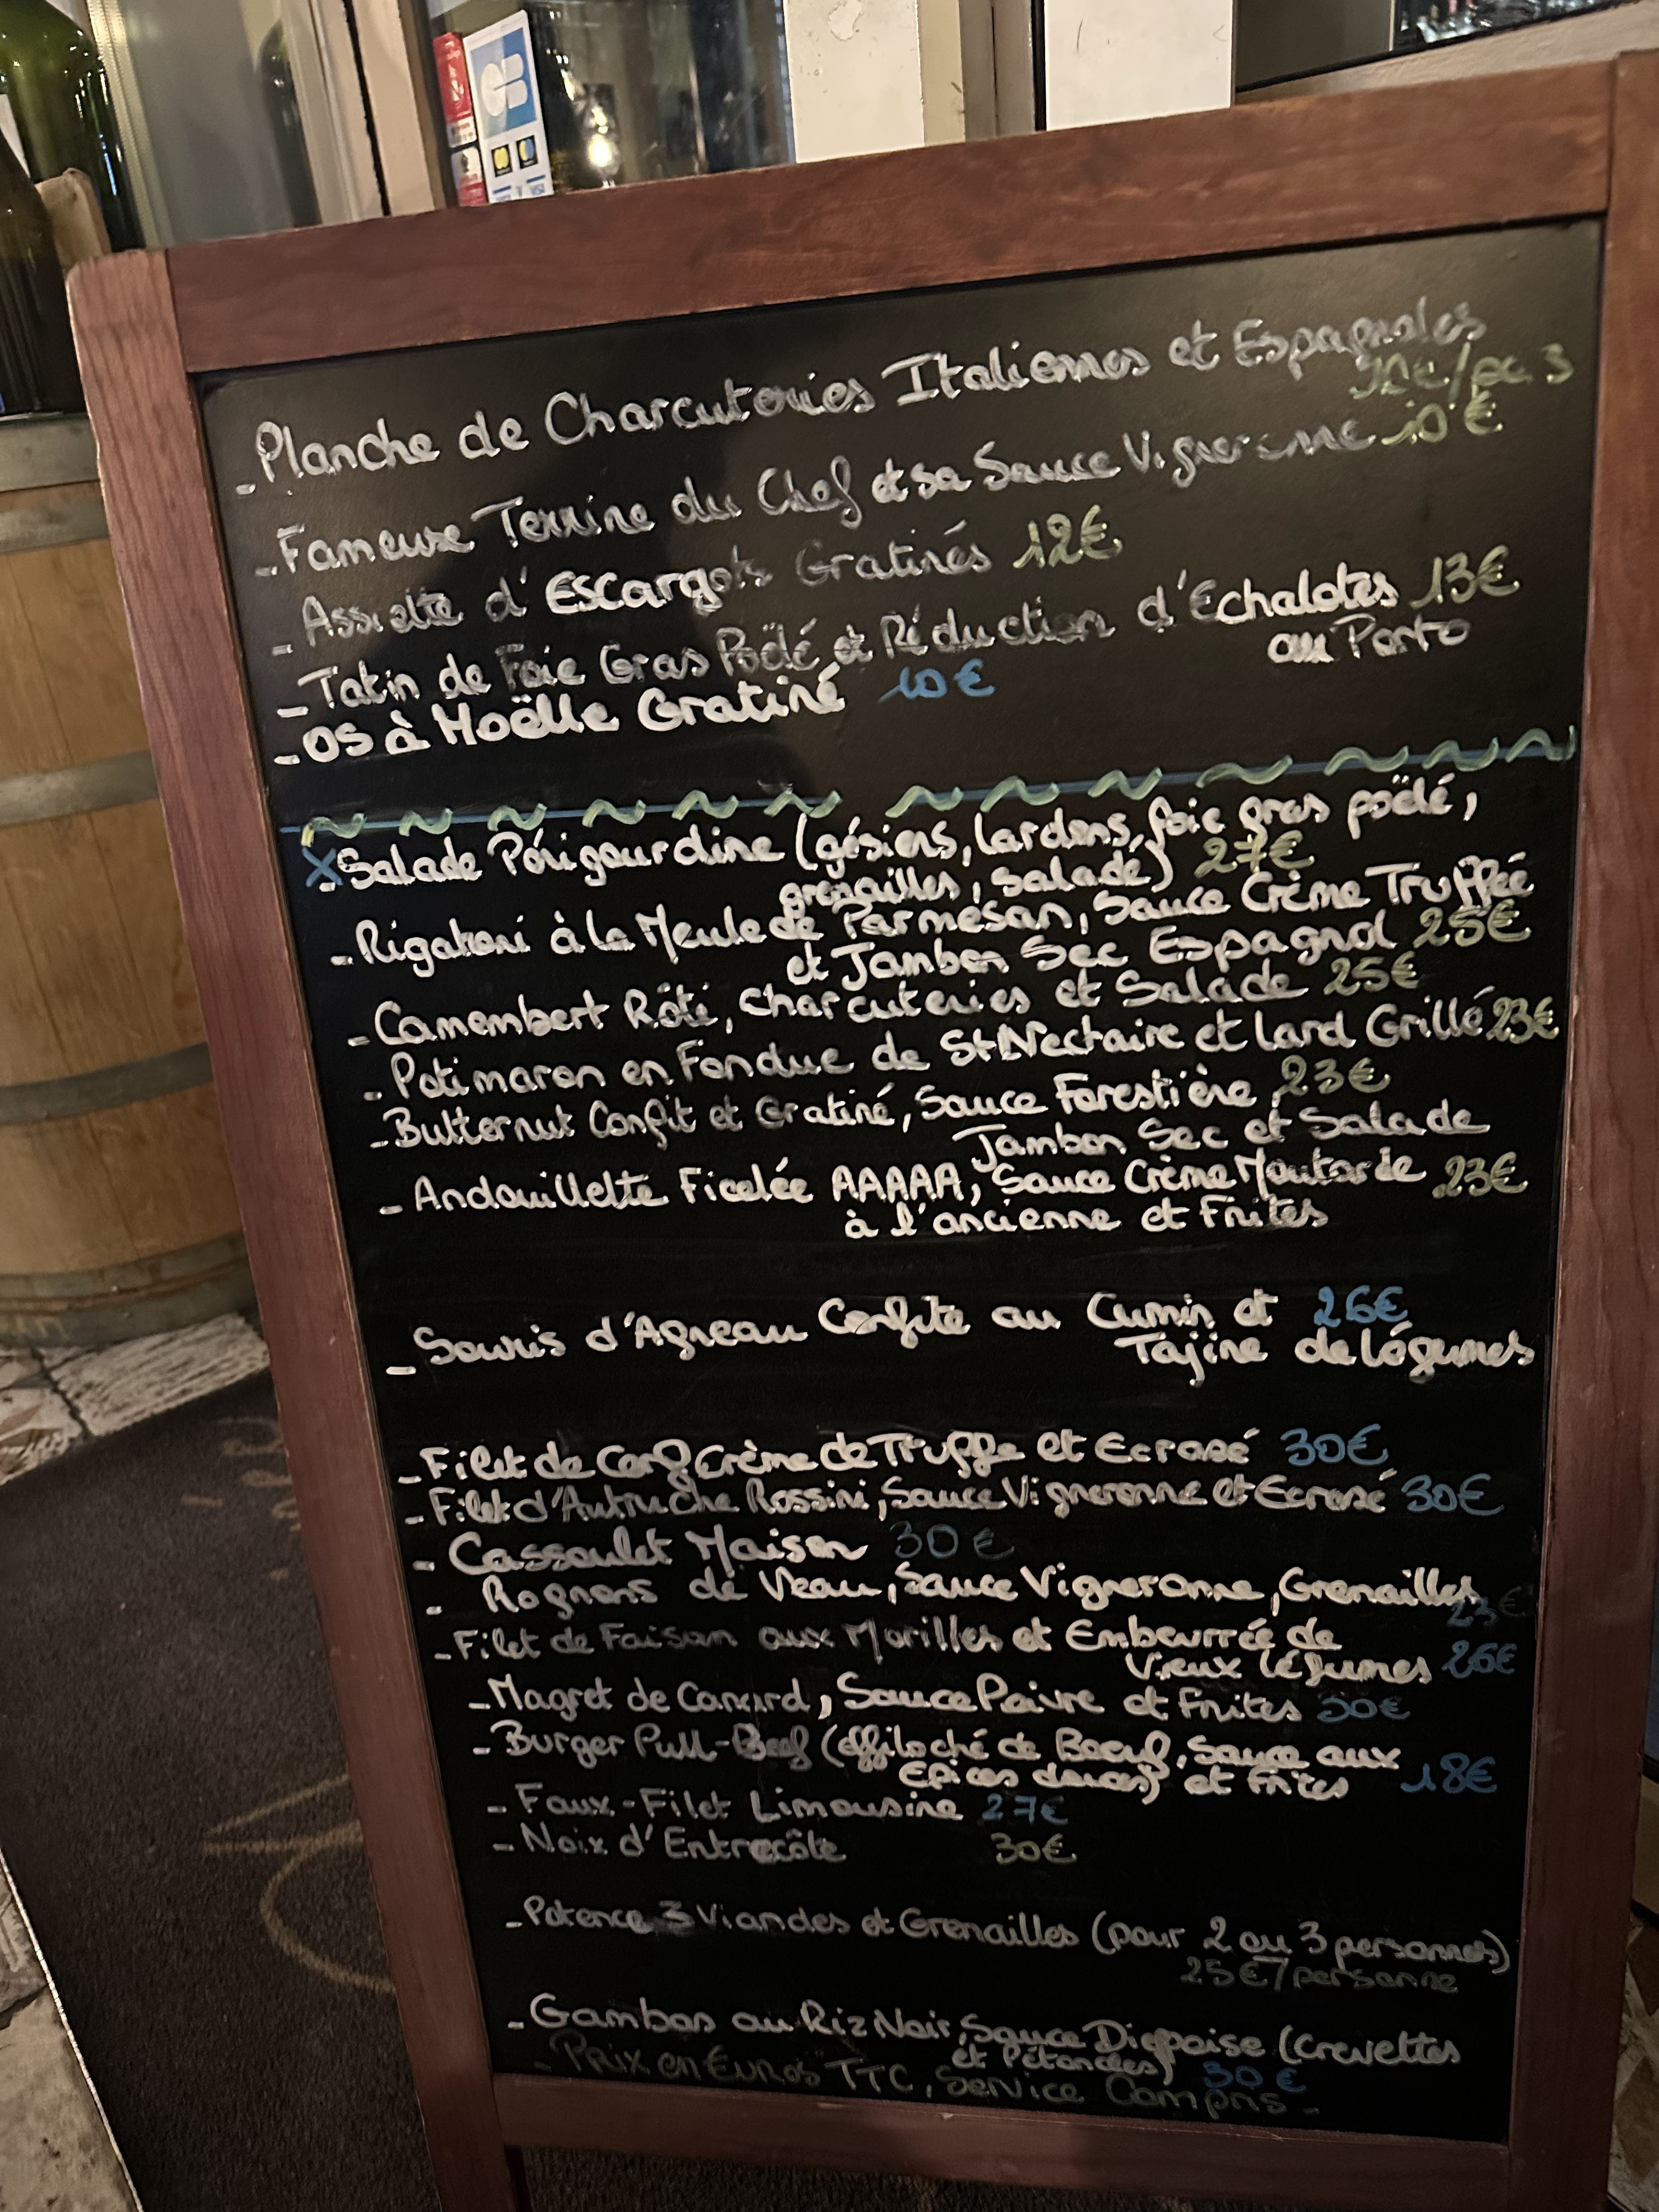 CB
VISA
- Planche de Charcuteries Italiennes et Espagnoles
/pc 3
- Fameuse Terrine du Chef et sa Sauce Vigneronne 10€
- Assiette d'Escargots Gratinés 12€
- Tatin de Foie Gras Poêlé et Réduction d'Echalotes 13€
au Porto
- OS à Moëlle Gratiné 10€
X Salade Périgourdine (gésiers, lardons, foie gras poëlé,
grenailles, salade) 27€
- Rigatoni à la Meule de Parmésan, Sauce Crème Truffée
et Jambon Sec Espagnol 25€
- Camembert Rôti, Charcuteries et Salade 25€
- Potimaron en Fondue de St Nectaire et Lard Grillé 23€
- Butternut Confit et Gratiné, Sauce Forestière 23€
Jambon Sec et Salade
- Andouillette Ficelée AAAAA, Sauce Crème Moutarde 23€
à l'ancienne et Frites
- Souris d'Agneau Confite au Cumin et 26€
Tajine de légumes
- Filet de Cerf Crème de Truffe et Ecrasé 30€
- Filet d'Autruche Rossini, Sauce Vigneronne et Ecrasé 30€
- Cassoulet Maison 30€
- Rognons de Veau, Sauce Vigneronne, Grenailles
23€
- Filet de Faisan aux Morilles et Embeurrée de
Vieux légumes 26€
- Magret de Canard, Sauce Poivre et Frites 30€
- Burger Pull-Beef (effiloché de Boeuf, Sauce aux
Epices douces) et Frites 18€
- Faux-Filet Limousine 27€
- Noix d'Entrecôte 30€
- Potence 3 Viandes et Grenailles (pour 2 ou 3 personnes)
25€/personne
- Gambas au Riz Noir, Sauce Diepoise (Crevettes
et Pétoncles) 30€
- Prix en Euros TTC, Service Compris -